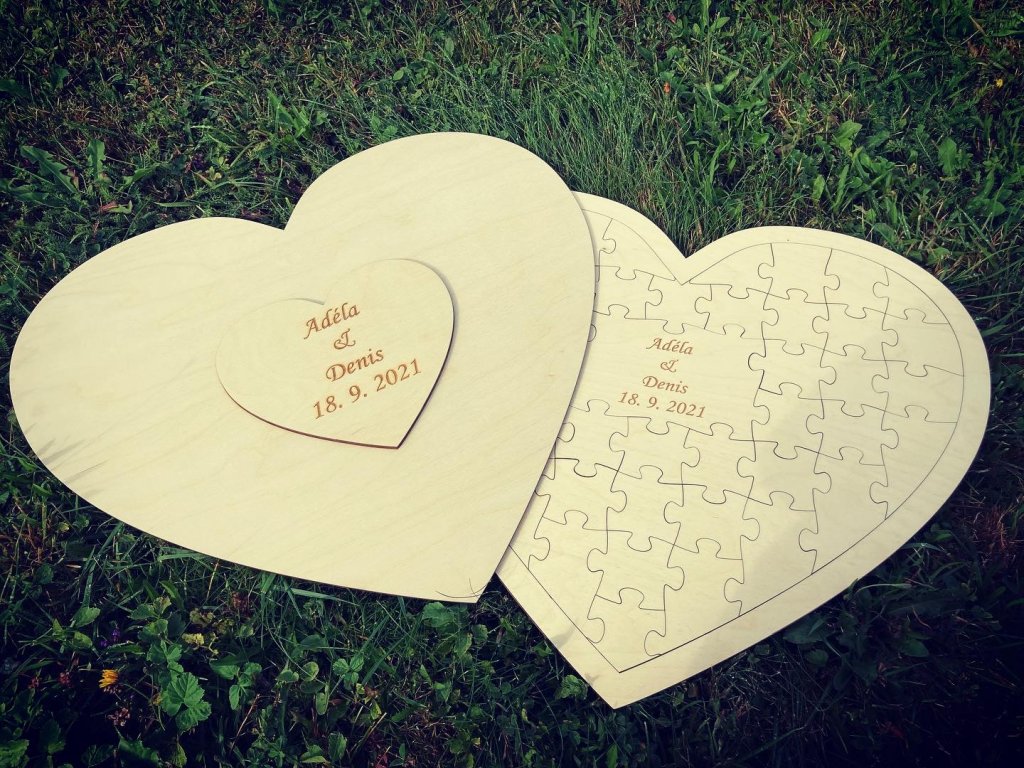 Adéla
&
Denis
18. 9. 2021
Adéla
&
Denis
18. 9. 2021